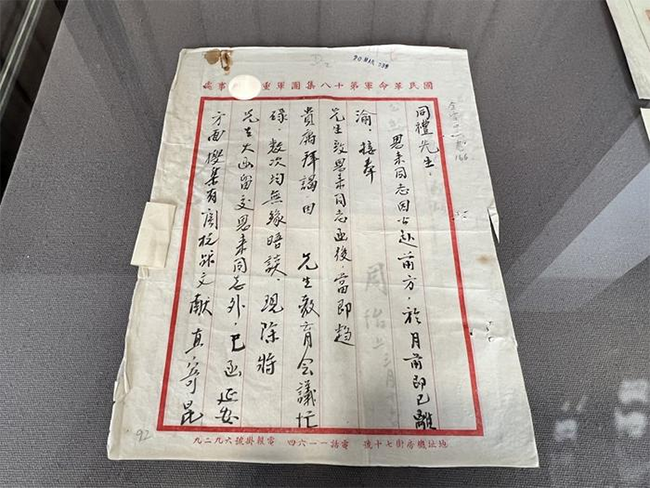 國民革命軍第十八集團軍重 事處
30 MAR
同禮先生：
恩来同志因公赴前方，於月前即已離
渝，接奉
先生致恩来同志函後，當即趋
貴府拜謁因 先生教育会議忙
碌，数次均無缘晤談，現除將
先生大函留交恩来同志外，已函延安
方面搜集有關抗战文献，直寄昆
地址機房街七十號 電話一一六四 電報掛號六九二九
92